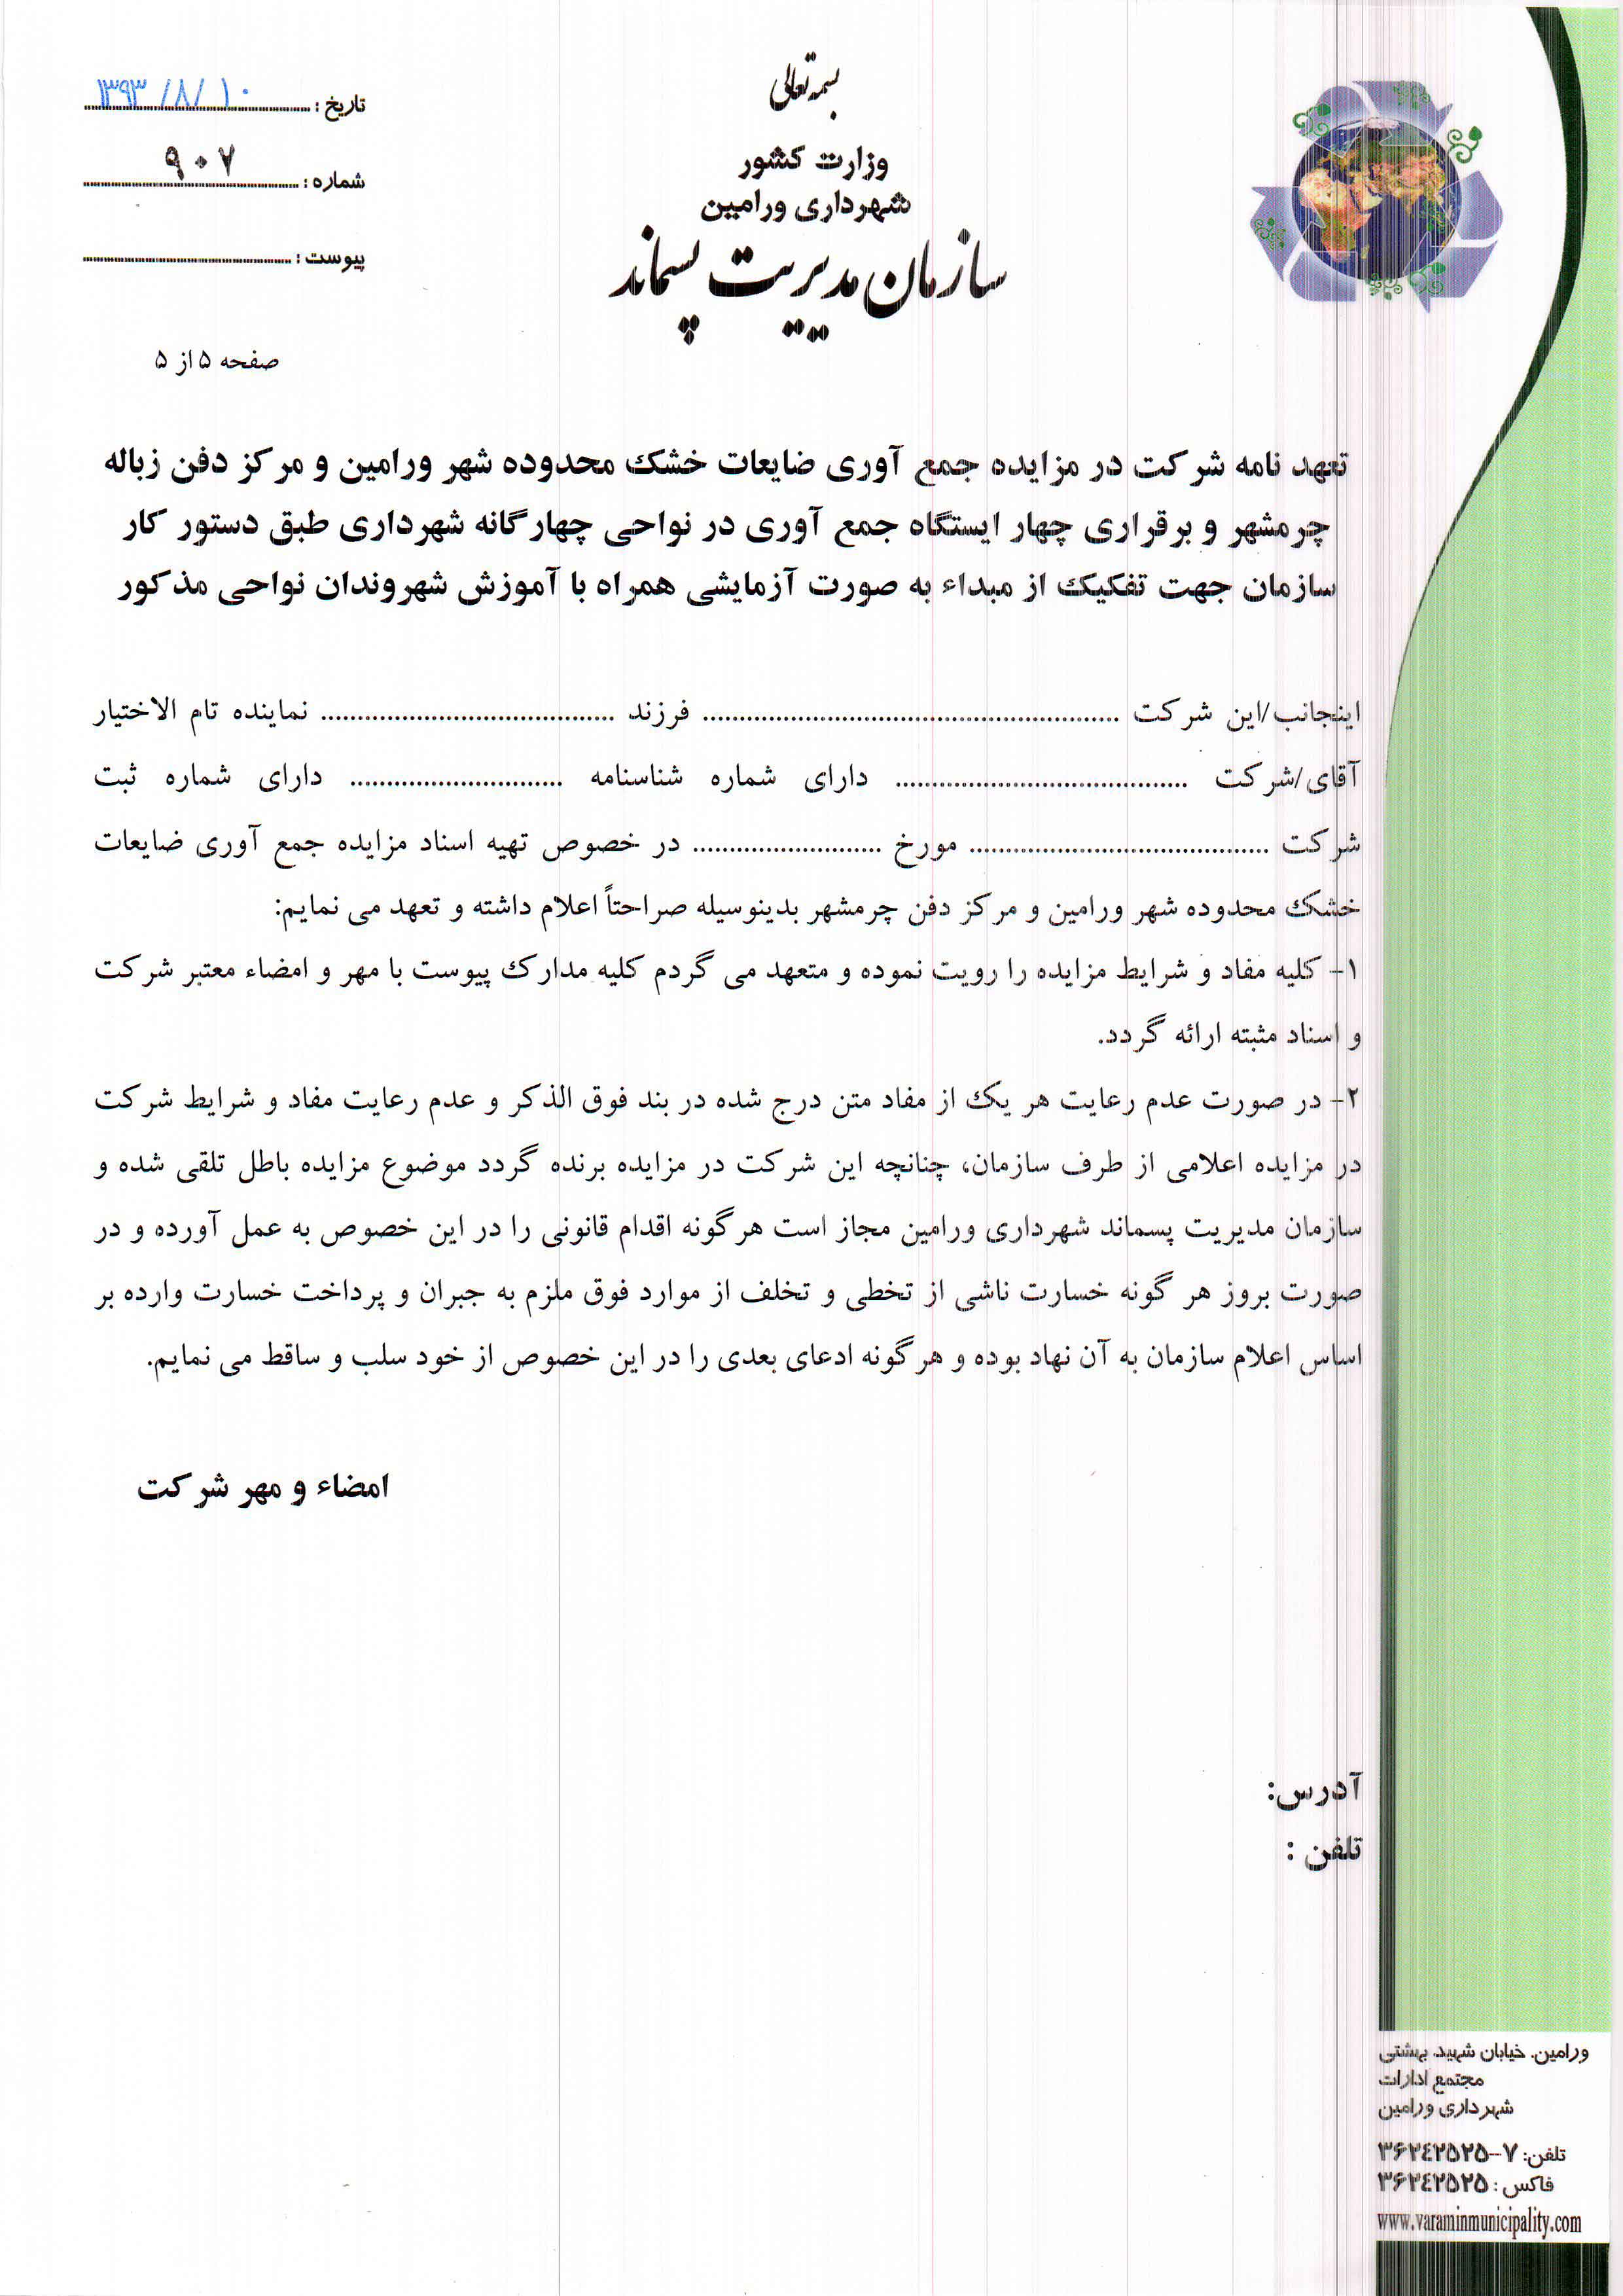 بسمه تعالی
وزارت کشور
شهرداری ورامین
سازمان مدیریت پسماند
تاریخ : ۱۳۹۳/۸/۱۰
شماره : ۹۰۷
پیوست :
صفحه ۵ از ۵
تعهد نامه شرکت در مزایده جمع آوری ضایعات خشک محدوده شهر ورامین و مرکز دفن زباله
چرمشهر و برقراری چهار ایستگاه جمع آوری در نواحی چهارگانه شهرداری طبق دستور کار
سازمان جهت تفکیک از مبداء به صورت آزمایشی همراه با آموزش شهروندان نواحی مذکور
اینجانب/این شرکت .................... فرزند .................... نماینده تام الاختیار
آقای/شرکت .................... دارای شماره شناسنامه .................... دارای شماره ثبت
شرکت .................... مورخ .................... در خصوص تهیه اسناد مزایده جمع آوری ضایعات
خشک محدوده شهر ورامین و مرکز دفن چرمشهر بدینوسیله صراحتاً اعلام داشته و تعهد می نمایم:
۱- کلیه مفاد و شرایط مزایده را رویت نموده و متعهد می گردم کلیه مدارک پیوست با مهر و امضاء معتبر شرکت
و اسناد مثبته ارائه گردد.
۲- در صورت عدم رعایت هر یک از مفاد متن درج شده در بند فوق الذکر و عدم رعایت مفاد و شرایط شرکت
در مزایده اعلامی از طرف سازمان، چنانچه این شرکت در مزایده برنده گردد موضوع مزایده باطل تلقی شده و
سازمان مدیریت پسماند شهرداری ورامین مجاز است هرگونه اقدام قانونی را در این خصوص به عمل آورده و در
صورت بروز هر گونه خسارت ناشی از تخطی و تخلف از موارد فوق ملزم به جبران و پرداخت خسارت وارده بر
اساس اعلام سازمان به آن نهاد بوده و هرگونه ادعای بعدی را در این خصوص از خود سلب و ساقط می نمایم.
امضاء و مهر شرکت
آدرس:
تلفن :
ورامین. خیابان شهید بهشتی
مجتمع ادارات
شهرداری ورامین
تلفن: ۷-۳۶۲۴۲۵۲۵
فاکس : ۳۶۲۴۲۵۲۵
www.varaminmunicipality.com